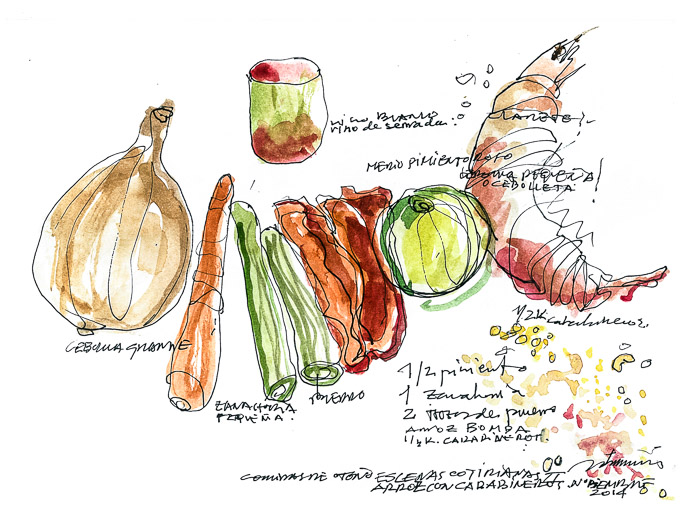 vino Blanco
vino de
MEDIO PIMIENTO ROJO
PEQUEÑA
O CEBOLLETA
1/2 K carabineros.
CEBOLLA GRANDE
ZANAHORIA
PEQUEÑA.
PUERRO
1/2 pimiento
1 Zanahoria
2 de puerro
ARROZ BOMBA
1/2 K. CARABINEROS.
COMIDAS DE OTOÑO ESCENAS COTIDIANAS
ARROZ CON CARABINEROS. NOVIEMBRE
2014